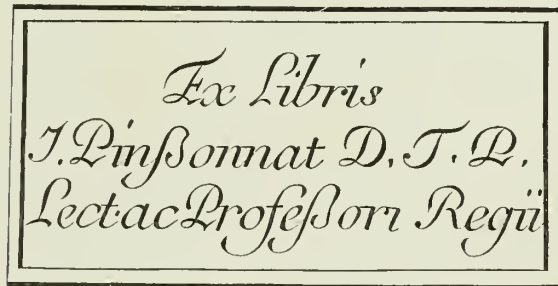 Ex Libris
J. Pinßonnat D. T. P.
Lect·ac Profeßori Regii